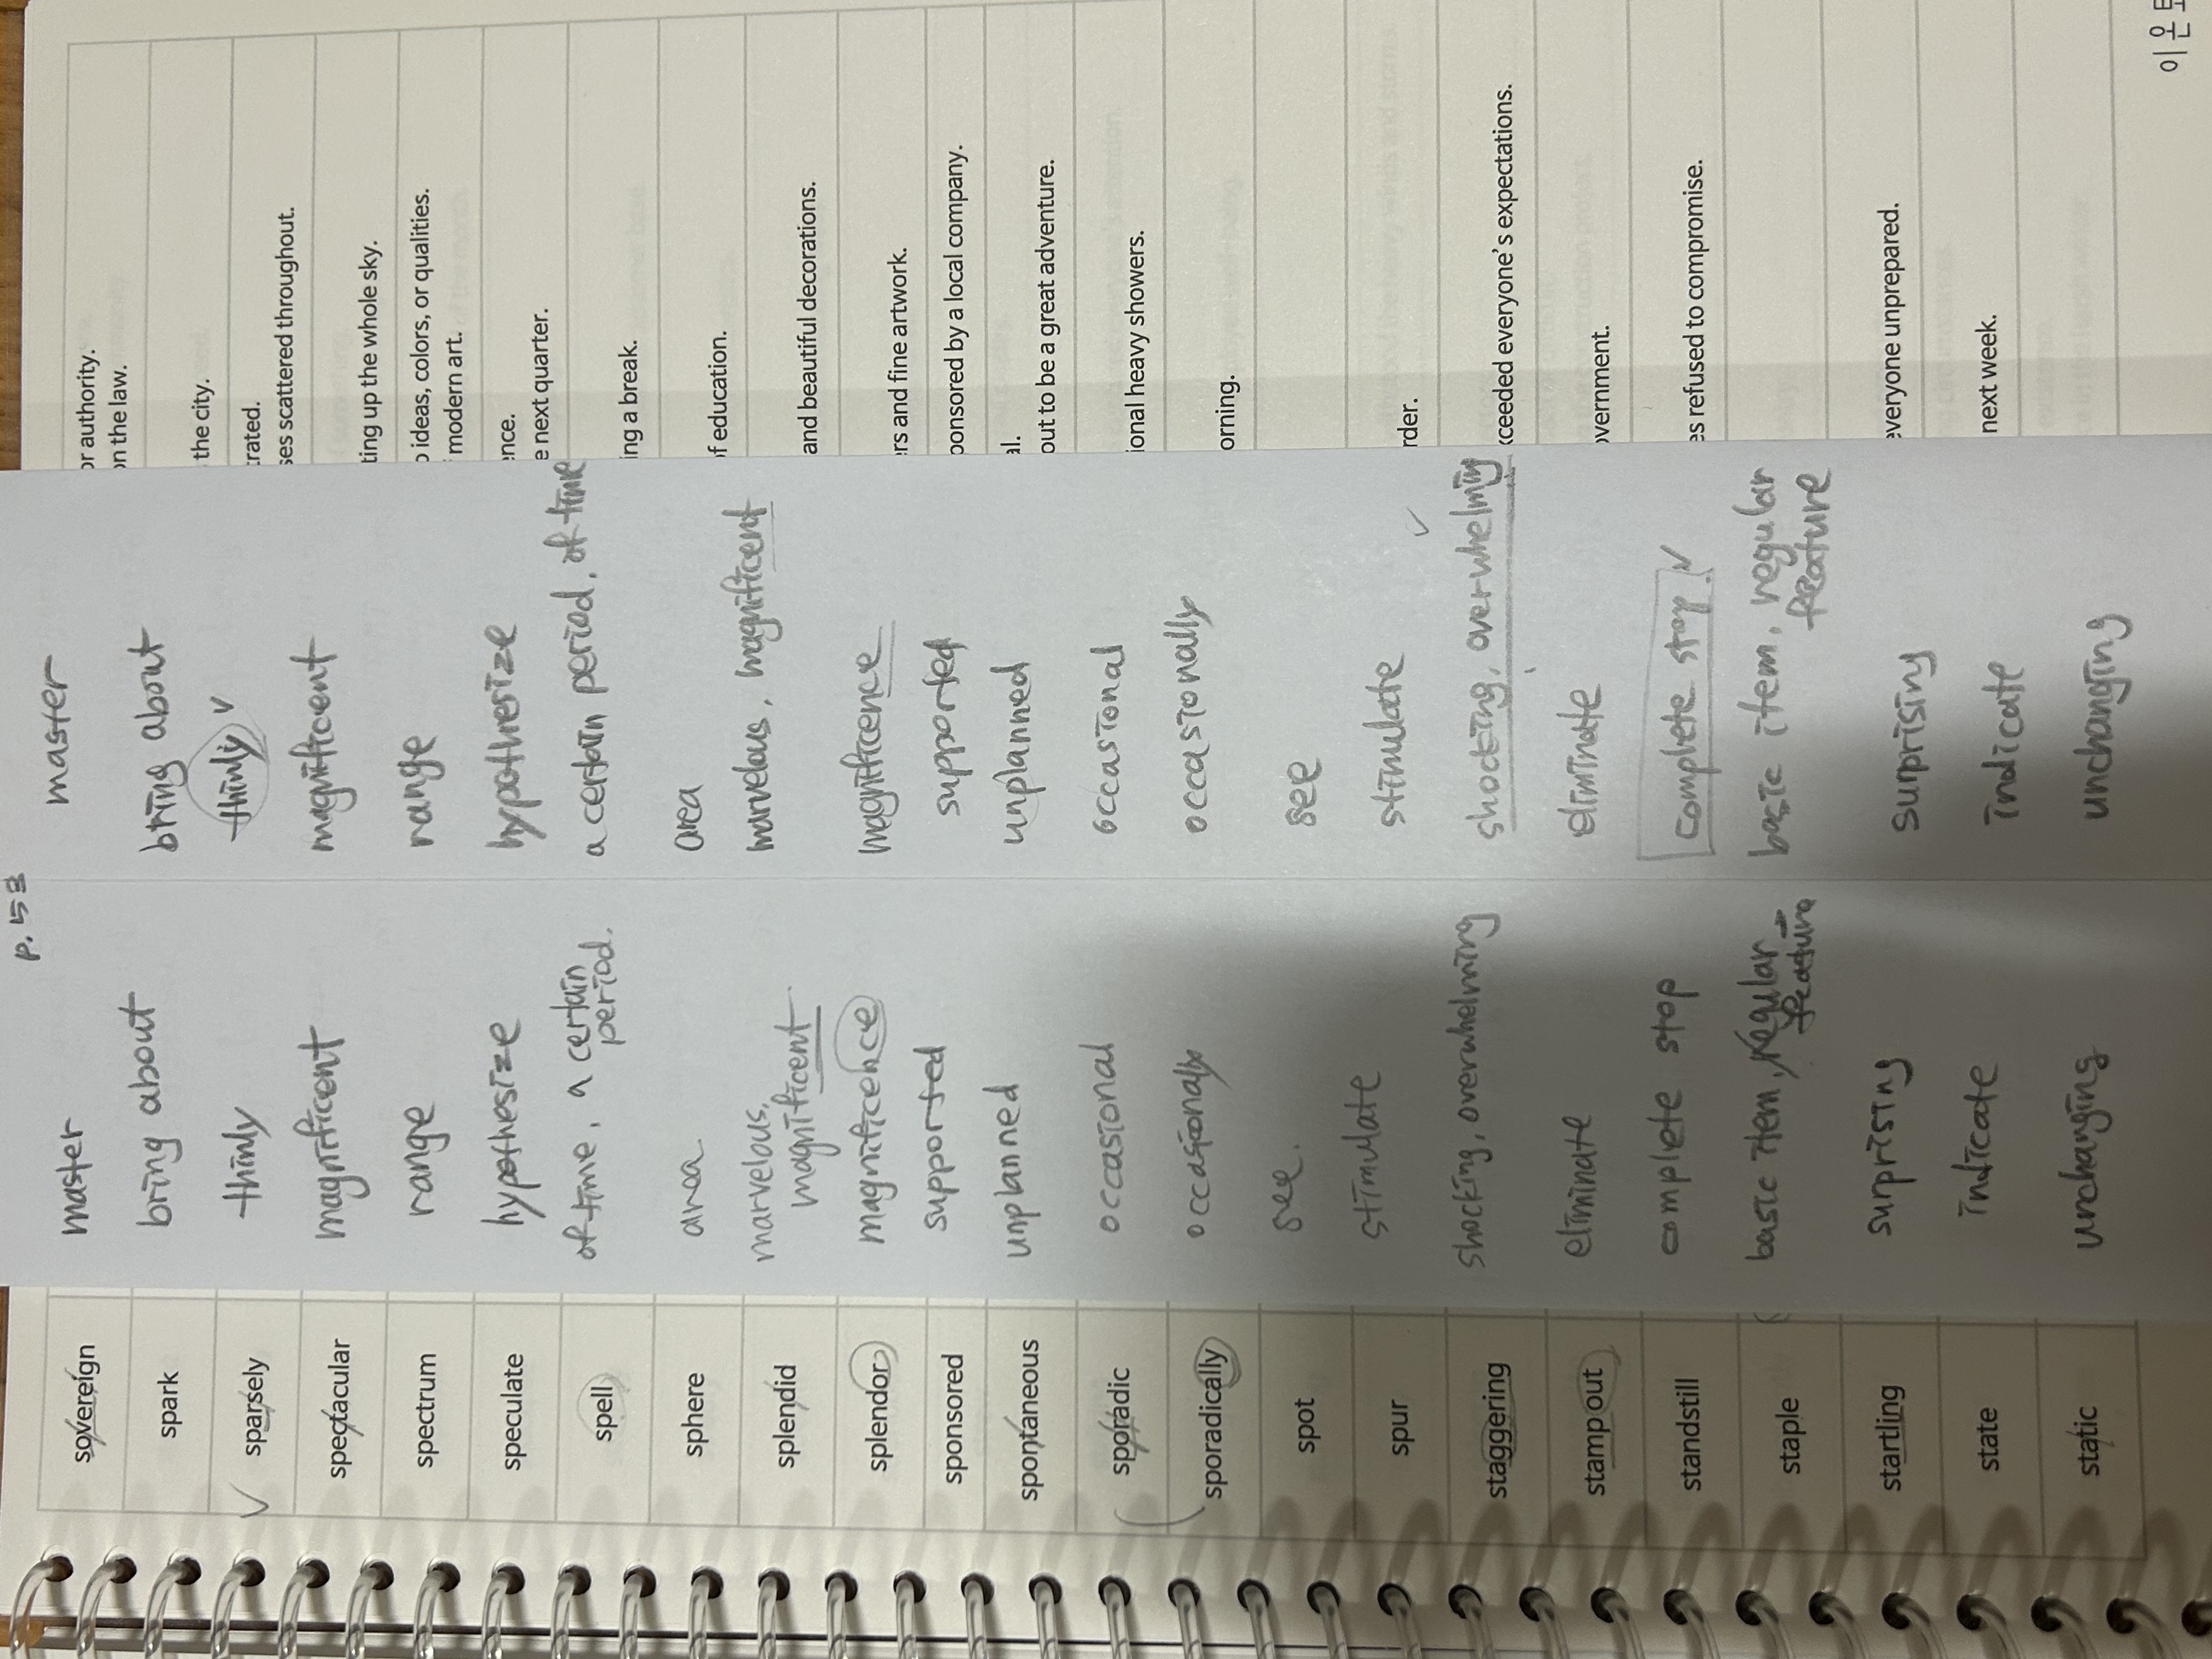 p. 53
sovereign
master
master
or authority.
on the law.
spark
bring about
bring about
the city.
sparsely
thinly
thinly
trated.
ses scattered throughout.
spectacular
magnificent
magnificent
ting up the whole sky.
spectrum
range
range
o ideas, colors, or qualities.
modern art.
speculate
hypothesize
hypothesize
ence.
e next quarter.
spell
of time, a certain
period.
a certain period, of time
ing a break.
sphere
area
area
of education.
splendid
marvelous,
magnificent
marvelous, magnificent
and beautiful decorations.
splendor
magnificence
magnificence
rs and fine artwork.
sponsored
supported
supported
ponsored by a local company.
spontaneous
unplanned
unplanned
al.
out to be a great adventure.
sporadic
occasional
occasional
ional heavy showers.
sporadically
occasionally
occasionally
orning.
spot
see.
see
spur
stimulate
stimulate
rder.
staggering
shocking, overwhelming
shocking, overwhelming
xceeded everyone's expectations.
stamp out
eliminate
eliminate
overnment.
standstill
complete stop
complete stop.
es refused to compromise.
staple
basic item, regular
feature
basic item, regular
feature
startling
surprising
surprising
everyone unprepared.
state
indicate
indicate
next week.
static
unchanging
unchanging